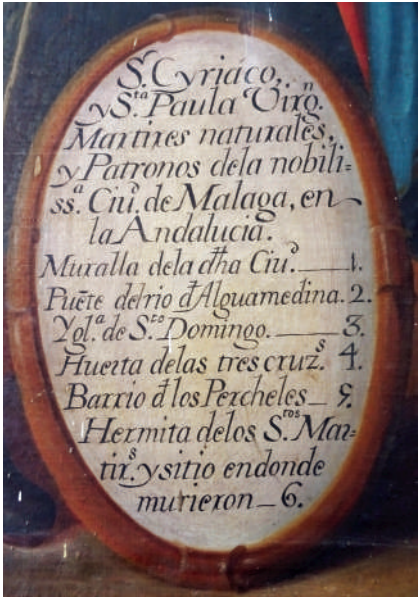 S.ⁿ Cyriáco,
y S.ᵗᵃ Paula Virg.ⁿ
Martires naturales,
y Patronos dela nobili=
ss.ᵃ Ciu.ᵈ de Malaga, en
la Andalucia.
Muralla dela dh̃a Ciu.ᵈ 1.
Puẽte del rio đ Alguamedina. 2.
Ygl.ᵃ de S.ᵗᵒ Domingo. 3.
Huerta delas tres cruz.ˢ 4.
Barrio đ los Percheles 5.
Hermita delos S.ᵗᵒˢ Mar=
tir.ˢ y sitio endonde
murieron 6.